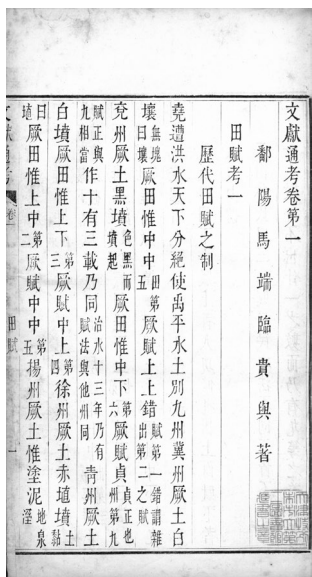 文獻通考卷第一
鄱陽馬端臨貴與著
田賦考一
歷代田賦之制
堯遭洪水天下分絕使禹平水土別九州冀州厥土白
壤無塊曰壤厥田惟中中田第五厥賦上上錯賦第一錯謂雜出第二之賦
兗州厥土黑墳色黑而墳起厥田惟中下第六厥賦貞貞正也州第九
賦正與九相當作十有三載乃同治水十三年乃有賦法與他州同青州厥土
白墳厥田惟上下第三厥賦中上第四徐州厥土赤埴墳土黏
曰埴厥田惟上中第二厥賦中中第五揚州厥土惟塗泥地泉溼
文獻通考 卷一 田賦